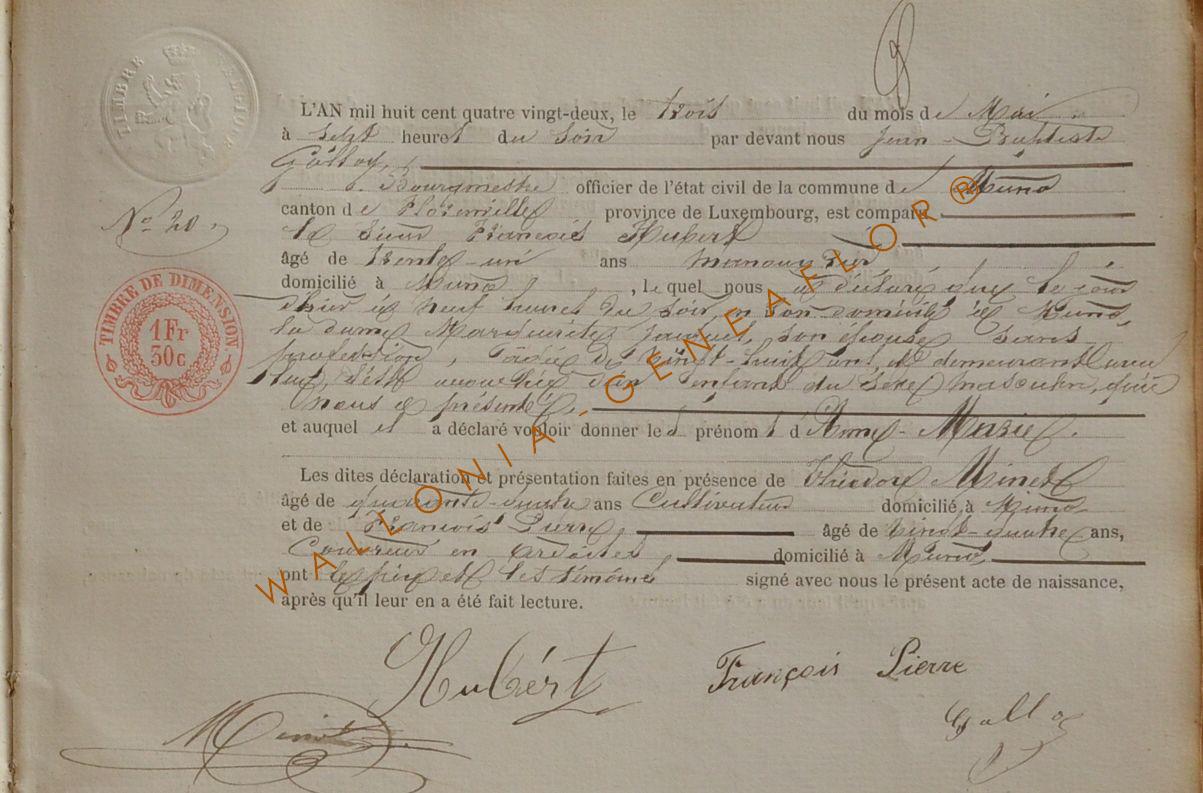 TIMBRE BELGIQUE
L'AN mil huit cent quatre vingt-deux, le trois du mois de Mai
à sept heures du soir par devant nous Jean-Baptiste
Galloy,
Bourgmestre officier de l'état civil de la commune de Muno
No 20.
canton de Florenville province de Luxembourg, est comparu
le sieur François Hubert
âgé de trente-un ans manouvrier
domicilié à Muno, lequel nous a déclaré que le jour
d'hier à neuf heures du soir, en son domicile à Muno,
la dame Marguerite Jacquet, son épouse sans
profession, âgée de vingt-huit ans, et demeurant avec
lui, est accouchée d'un enfant du sexe masculin, qu'il
nous a présenté,
et auquel il a déclaré vouloir donner les prénoms d Aimé-Marie.
TIMBRE DE DIMENSION
1 Fr
30 c
Les dites déclaration et présentation faites en présence de Théodore Minet
âgé de quarante-quatre ans Cultivateur domicilié à Muno
et de François Pierre, âgé de vingt-quatre ans,
Couvreur en ardoises domicilié à Muno,
ont le père et les témoins signé avec nous le présent acte de naissance,
après qu'il leur en a été fait lecture.
Hubért
François Pierre
Minet
Galloy
WALLONIA-GENEAFLOR®